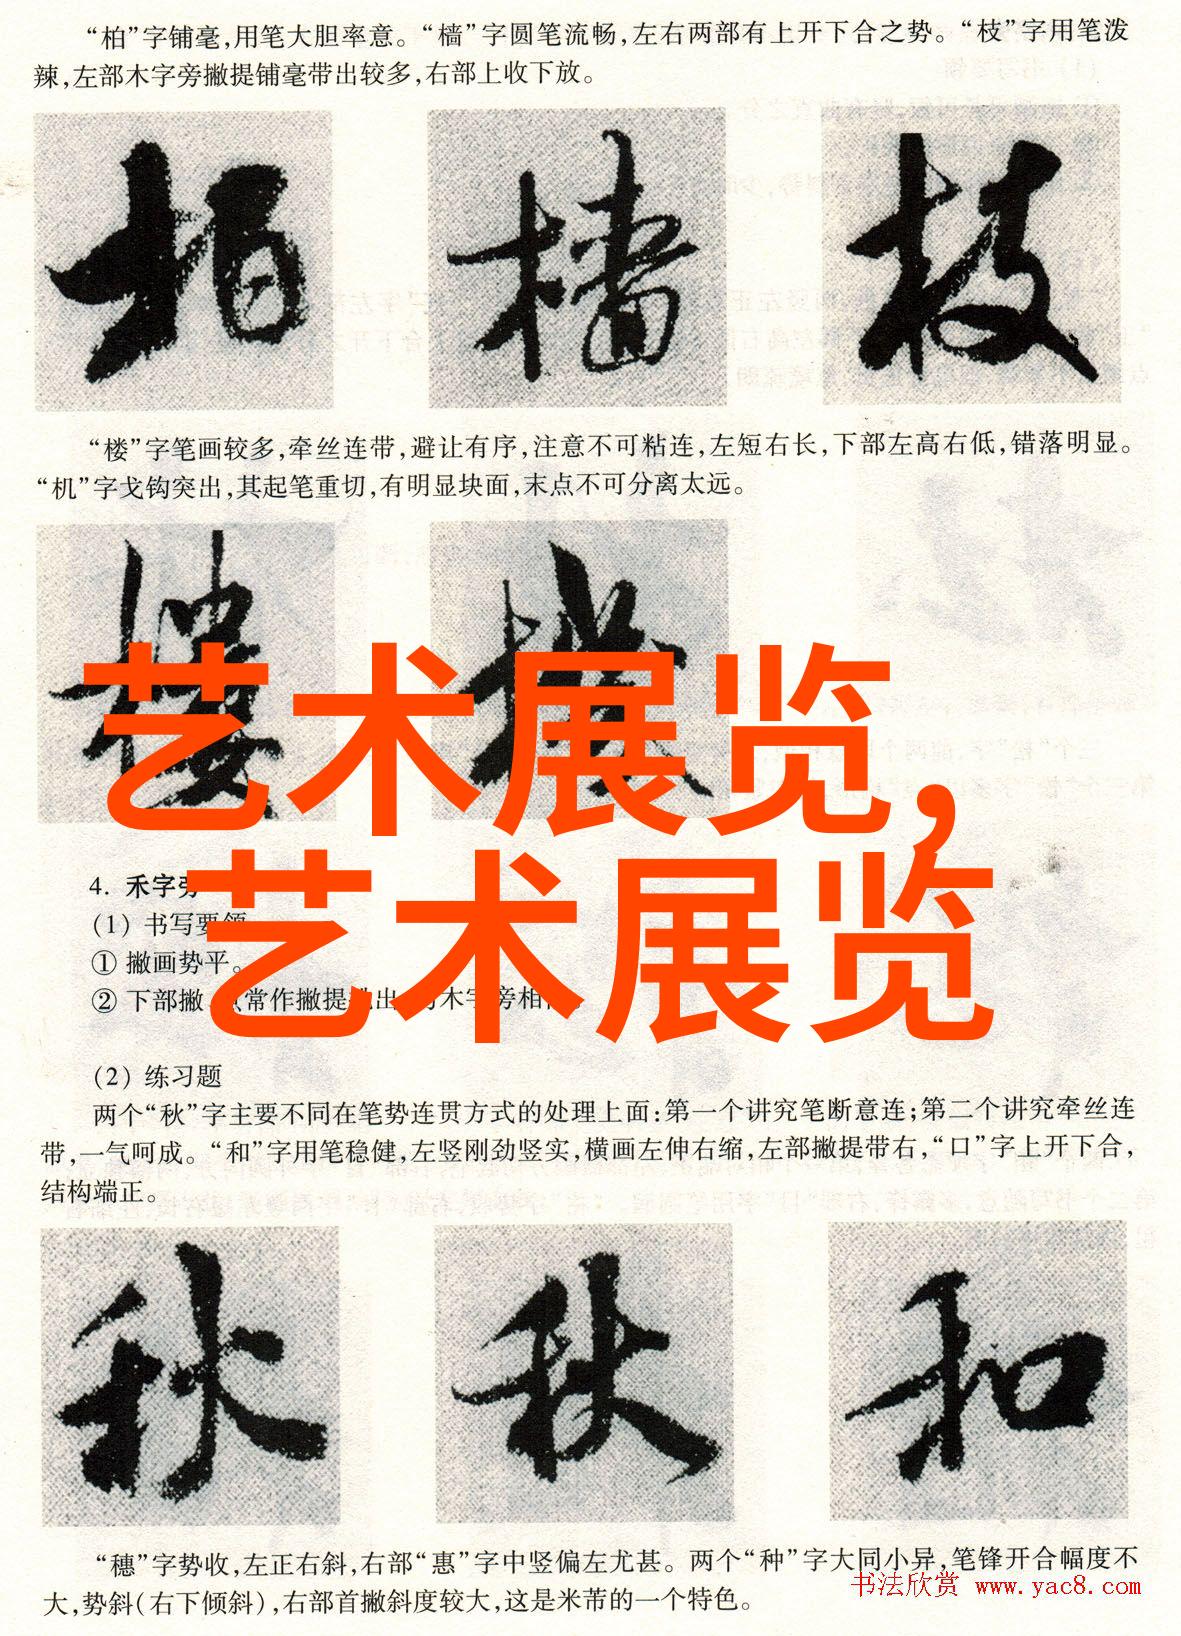 “柏”字铺毫,用笔大胆率意。“樯”字圆笔流畅,左右两部有上开下合之势。“枝”字用笔泼
辣,左部木字旁撇提铺毫带出较多,右部上收下放。
柏 樯 枝
“楼”字笔画较多,牵丝连带,避让有序,注意不可粘连,左短右长,下部左高右低,错落明显。
“机”字戈钩突出,其起笔重切,有明显块面,末点不可分离太远。
楼 機
艺术展览,
艺术展览
4. 禾字旁
(1) 书写要领
① 撇画势平。
② 下部撇 常作撇提 出 木字旁相
(2) 练习题
两个“秋”字主要不同在笔势连贯方式的处理上面:第一个讲究笔断意连;第二个讲究牵丝连
带,一气呵成。“和”字用笔稳健,左竖刚劲竖实,横画左伸右缩,左部撇提带右,“口”字上开下合,
结构端正。
秋 秋 和
“穗”字势收,左正右斜,右部“惠”字中竖偏左尤甚。两个“种”字大同小异,笔锋开合幅度不
大,势斜(右下倾斜),右部首撇斜度较大,这是米芾的一个特色。
书法欣赏 www.yac8.com